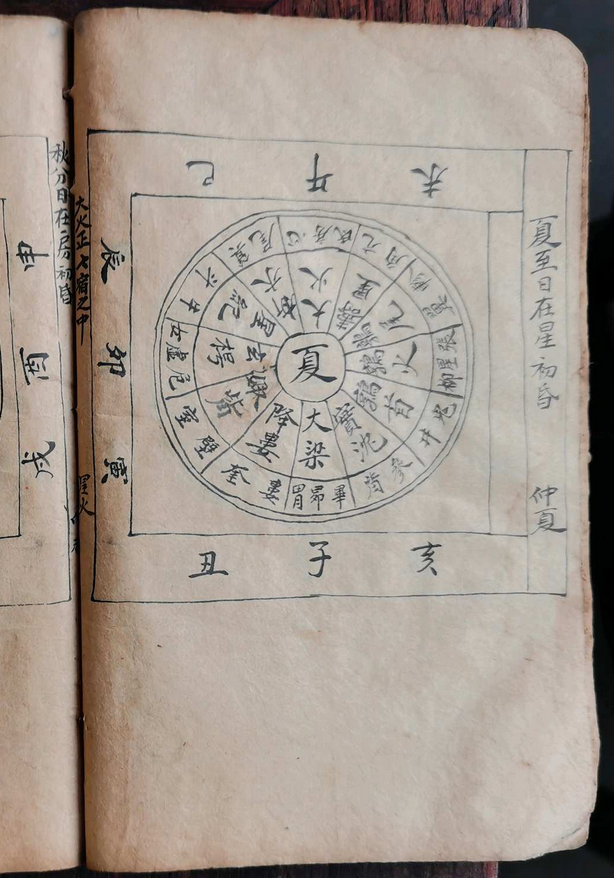 夏至日在星初昏
仲夏
未
午
巳
辰
卯
寅
丑
子
亥
夏
大火
壽星
鶉尾
鶉火
鶉首
實沈
大梁
降婁
娵訾
玄枵
星紀
析木
氐房心
角亢
翼軫
柳星張
井鬼
參觜
胃昴畢
奎婁
室壁
女虛危
斗牛
尾箕
大火正七宿之中
星火
秋分日在房初昏
申
酉
戌